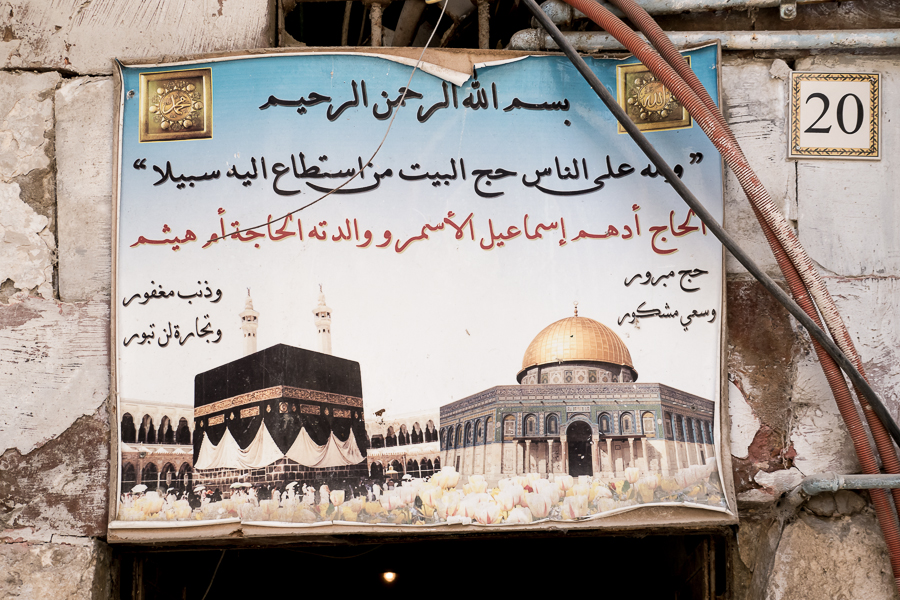 بسم الله الرحمن الرحيم
محمد
الله
20
”ولله على الناس حج البيت من استطاع اليه سبيلا“
الحاج أدهم إسماعيل الأسمر و والدته الحاجة أم هيثم
حج مبرور
وسعي مشكور
وذنب مغفور
وتجارة لن تبور